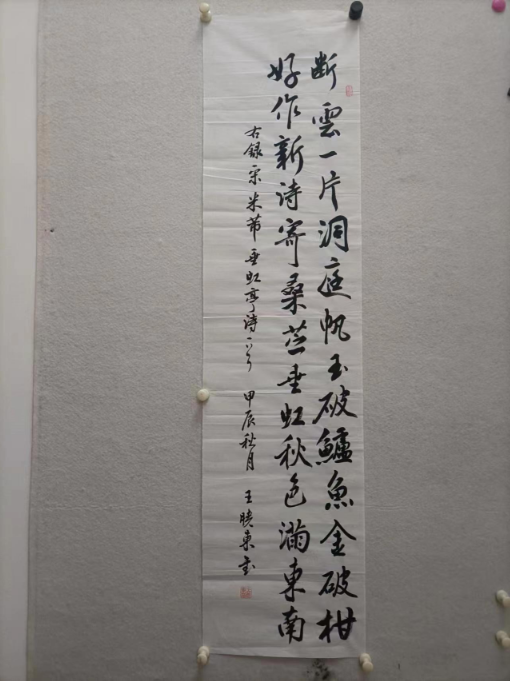 断雲一片洞庭帆玉破鱸魚金破柑
好作新诗寄桑苎垂虹秋色滿東南
右録宋米芾垂虹亭诗一首 甲辰秋月 王映東書